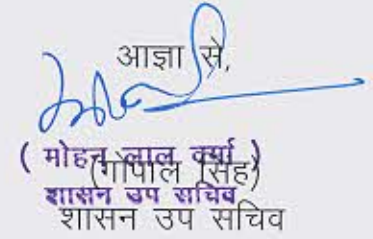 आज्ञा से,
( मोहन लाल वर्मा )
(गोपाल सिंह)
शासन उप सचिव
शासन उप सचिव